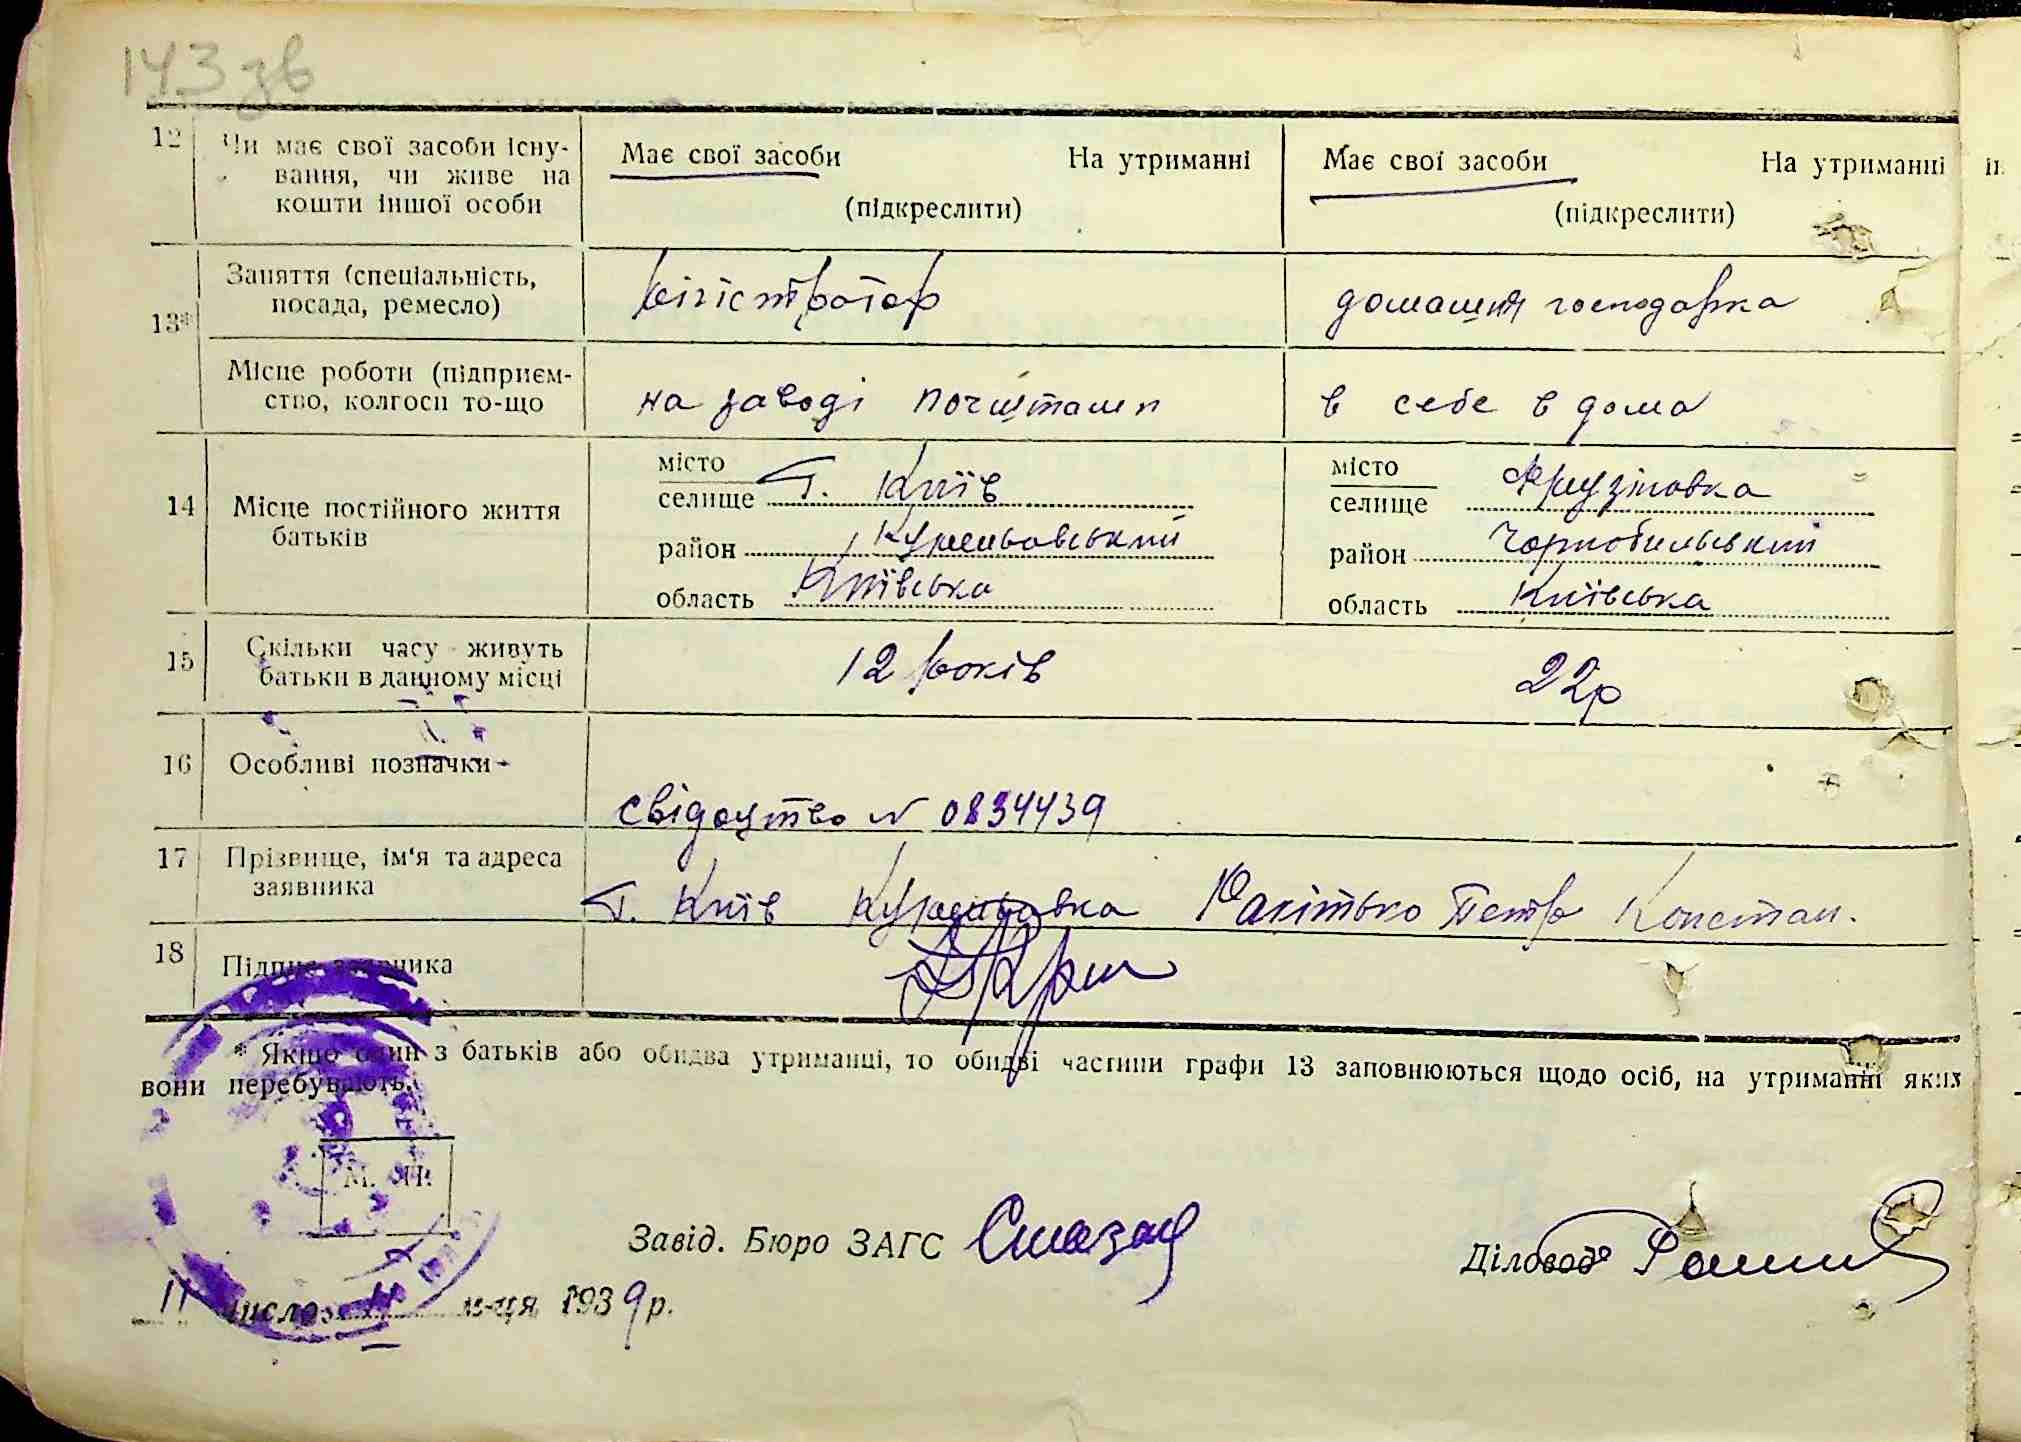 143 зв
12 Чи має свої засоби існу- Має свої засоби На утриманні Має свої засоби На утриманні
вання, чи живе на
кошти іншої особи (підкреслити) (підкреслити)
Заняття (спеціальність, регістратор домашня господарка
посада, ремесло)
13*
Місце роботи (підприєм- на заводі в себе в дома
ство, колгосп то-що
місто місто
14 Місце постійного життя селище Г. Київ селище
батьків район район Чорнобильський
область Київська область Київська
15 Скільки часу живуть 12 років 22р
батьки в данному місці
16 Особливі позначки
свідоцтво N 0834439
17 Прізвище, ім'я та адреса
заявника Г. Київ Ракітько Петр Констан.
18 Підпис заявника
* Якщо один з батьків або обидва утриманці, то обидві частини графи 13 заповнюються щодо осіб, на утриманні яких
вони перебувають.
М. П.
Завід. Бюро ЗАГС Діловод
11 число 11 м-ця 1939р.